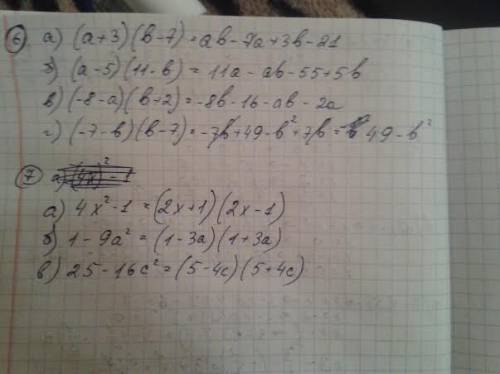 6 а) (a+3)(b-7)=ab-7a+3b-21
б) (a-5)(11-b)=11a-ab-55+5b
в) (-8-a)(b+2)=-8b-16-ab-2a
г) (-7-b)(b-7)=-7b+49-b²+7b=49-b²
7
а) 4x²-1=(2x+1)(2x-1)
б) 1-9a²=(1-3a)(1+3a)
в) 25-16c²=(5-4c)(5+4c)